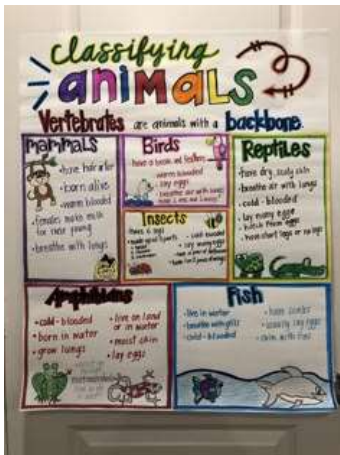 classifying
animals
Vertebrates are animals with a backbone.
Mammals
• have hair or fur
• born alive
• warm blooded
• females make milk
for their young
• breathe with lungs
Birds
• have a beak and feathers
• warm blooded
• lay eggs
• breathe air with lungs
have 2 legs and 2 wings
Reptiles
• have dry, scaly skin
• breathe air with lungs
• cold-blooded
• lay many eggs
• hatch from eggs
• have short legs or no legs
Insects
• have 6 legs
• cold blooded
• lay many eggs
Amphibians
• cold-blooded
• born in water
• grow lungs
• live on land
or in water
• moist skin
• lay eggs
Fish
• live in water
• breathe with gills
• cold-blooded
• have scales
• usually lay eggs
• swim with fins